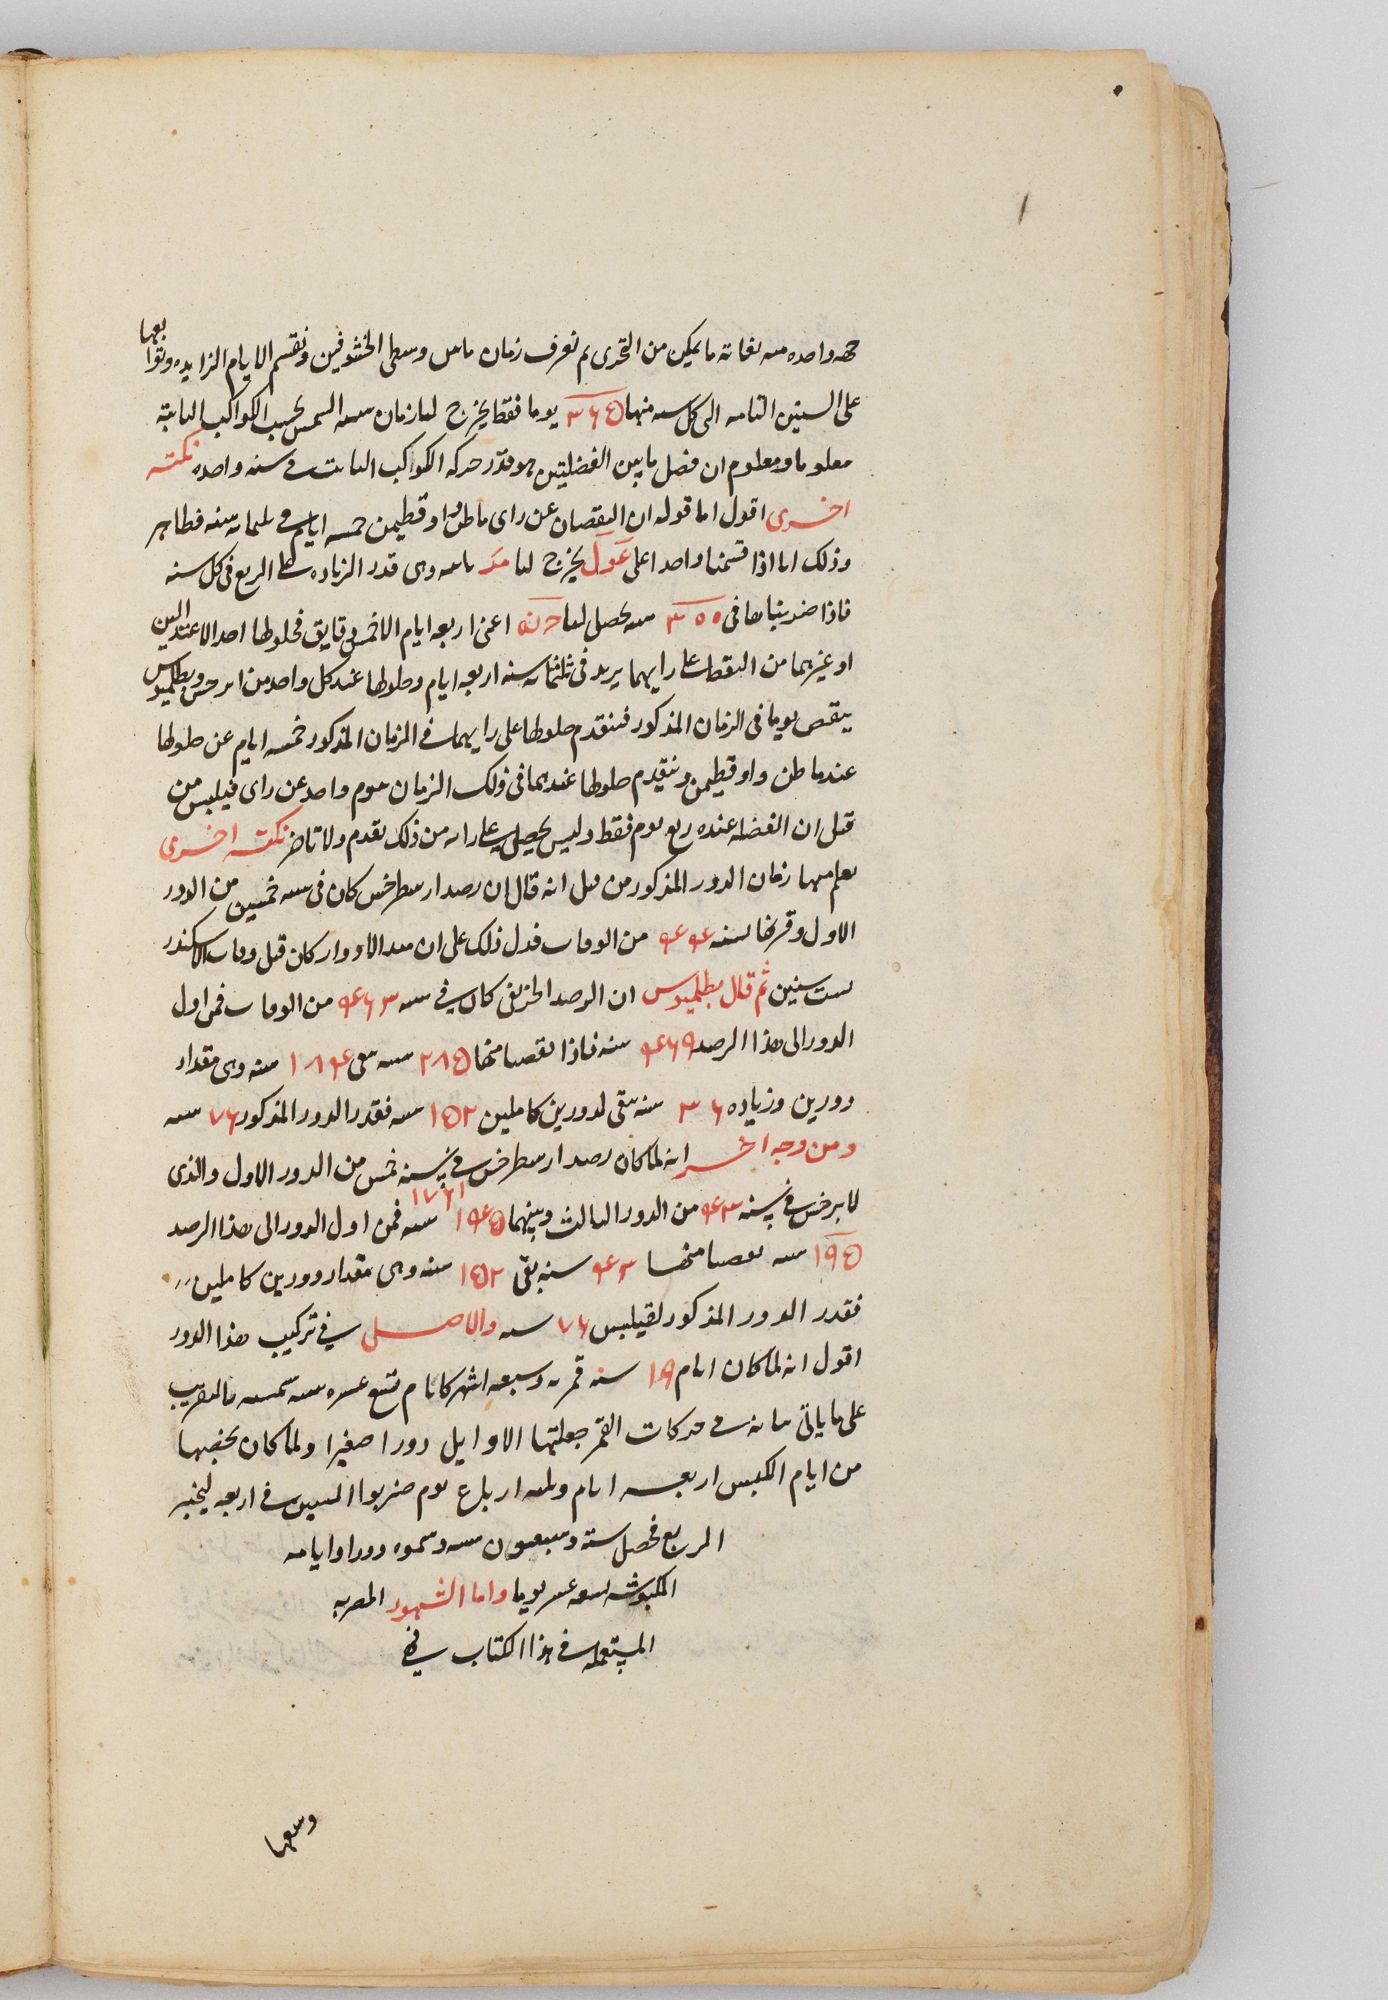 جهه واحده منه بغاية ما يمكن من التحرى ثم نعرف زمان ما بين وسطى الخسوفين ونقسم الايام الزايده وتوابعها
على السنين التامه الى كل سنه منها ٣٦٥ يوما فقط يخرج لنا زمان سنه الشمس بحسب الكواكب الثابتة
معلوما ومعلوم ان فضل ما بين الفضلتين هو قدر حركه الكواكب الثابته فى سنه واحده نكته
اخرى اقول اما قوله ان النقصان عن راى ماطن واوقطيمن خمسه ايام فى ثلثمايه سنه فظاهر
وذلك انا اذا قسمنا واحدا على يخرج لنا ثانيه وهى قدر الزياده على الربع فى كل سنه
فاذا ضربناها فى ٣٠٠ سنه يحصل لنا اعنى اربعه ايام الا خمس دقايق فحلولها احد الاعتدالين
او غيرهما من النقط على رايهما يزيد فى ثلثمائه سنه اربعه ايام وحلولها عند كل واحد من ابرخس وبطلميوس
ينقص يوما فى الزمان المذكور فيتقدم حلولها على رايهما فى الزمان المذكور خمسه ايام عن حلولها
عند ماطن واوقطيمن ويتقدم حلولها عندهما فى ذلك الزمان بيوم واحد عن راى فيلبس من
قبل ان الفضله عنده ربع يوم فقط وليس يحصل على رايه من ذلك تقدم ولا تاخر نكته اخرى
يعلم منها زمان الدور المذكور من قبل انه قال ان رصد ارسطرخس كان فى سنه خمسين من الدور
الاول وقرنها بسنه ٤٤ من الوفاه فدل ذلك على ان مبدا الادوار كان قبل وفاه الاسكندر
بست سنين ثم قال بطلميوس ان الرصد الخريفى كان فى سنه ٤٦٣ من الوفاه فمن اول
الدور الى هذا الرصد ٤٦٩ سنه فاذا نقصنا منها ٢٨٥ سنه بقى ١٨٤ سنه وهى مقدار
دورين وزياده ٣٢ سنه يبقى لدورين كاملين ١٥٢ سنه فقدر الدور المذكور ٧٦ سنه
ومن وجه اخر انه لما كان رصد ارسطرخس فى سنه خمس من الدور الاول والذى
لابرخس فى سنه ٤٣ من الدور الثالث وبينهما ١٤٥ سنه فمن اول الدور الى هذا الرصد
١٩٥ سنه نقصنا منها ٤٣ سنه بقى ١٥٢ سنه وهى مقدار دورين كاملين
فقدر الدور المذكور لقيلبس ٧٦ سنه والاصل فى تركيب هذا الدور
اقول انه لما كان ايام ١٩ سنه قمريه وسبعه اشهر كايام تسع عشره سنه شمسيه بالتقريب
على ما ياتى بيانه فى حركات القمر جعلتها الاوايل دورا صغيرا ولما كان يخصها
من ايام الكبس اربعه ايام وثلثه ارباع يوم ضربوا السنين فى اربعه لينجبر
الربع فحصل سته وسبعون سنه وسموه دورا وايامه
المكبوسه تسعه عشر يوما واما الشهور المصريه
المستعمله فى هذا الكتاب فهى
وسعها